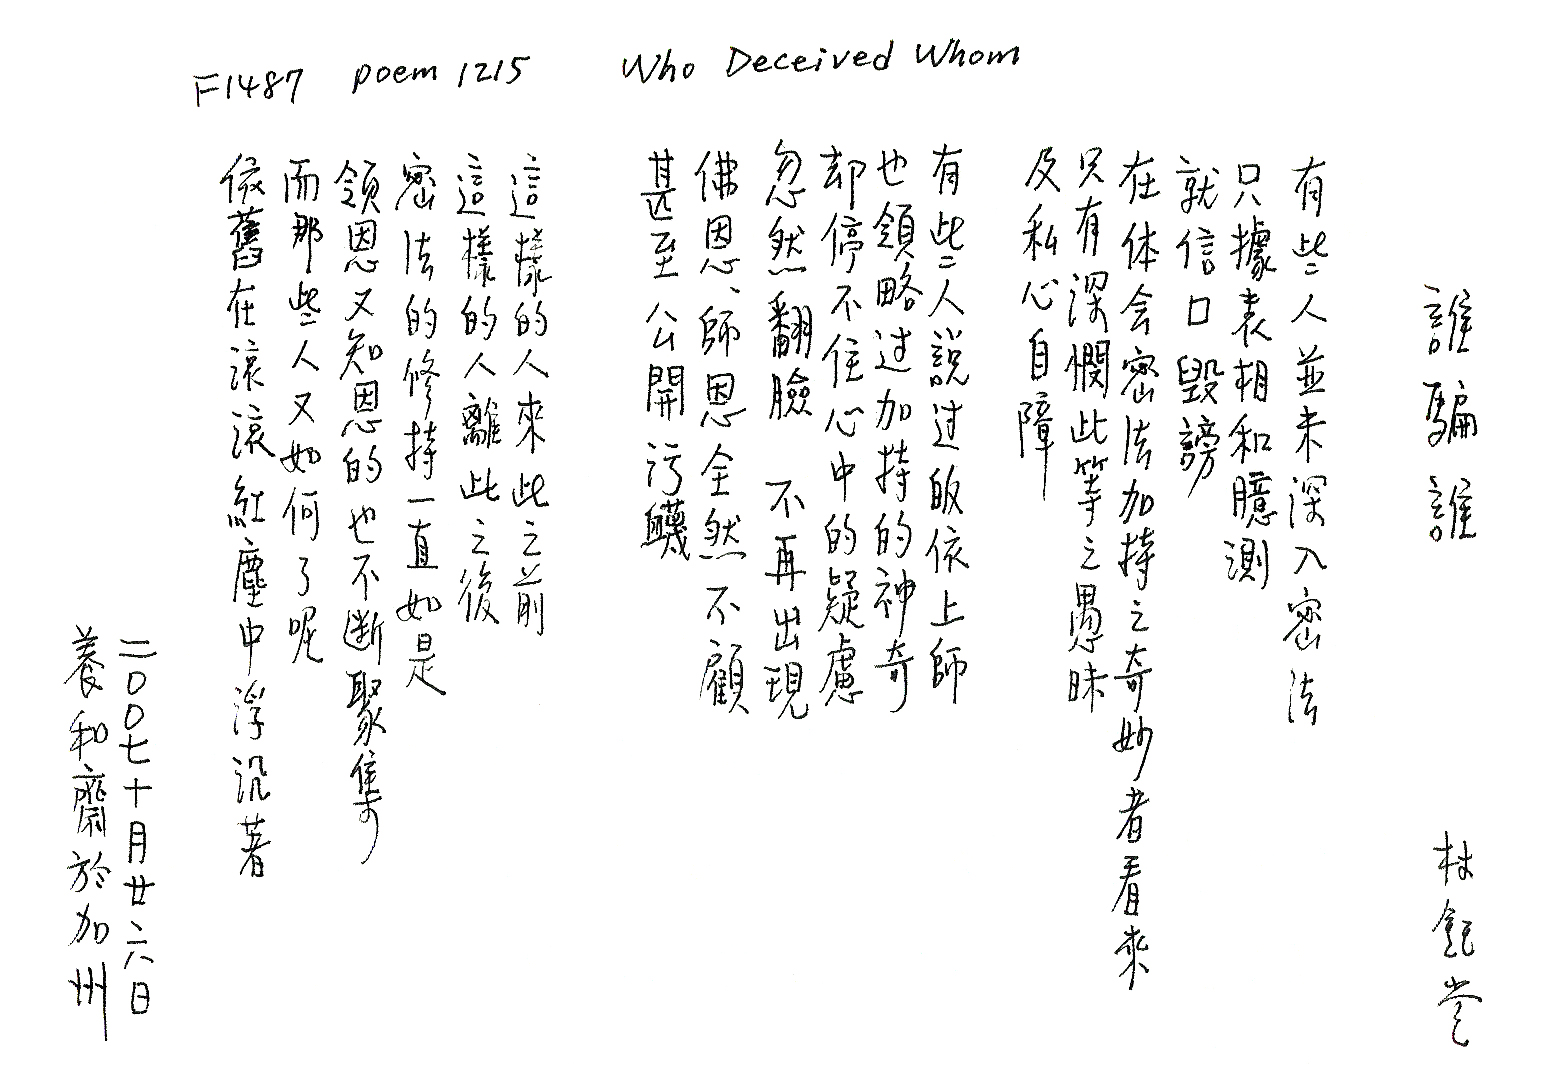 F1487 poem 1215 Who Deceived Whom
誰騙誰 林鈺堂
有些人並未深入密法
只據表相和臆測
就信口毀謗
在体会密法加持之奇妙者看來
只有深憫此等之愚昧
及私心自障
有些人說过皈依上師
也領略过加持的神奇
却停不住心中的疑慮
忽然翻臉 不再出現
佛恩、師恩全然不顧
甚至公開污衊
這樣的人來此之前
這樣的人離此之後
密法的修持一直如是
領恩又知恩的也不断聚集
而那些人又如何了呢
依舊在滾滾紅塵中浮沉著
二00七十月廿六日
養和齋於加州